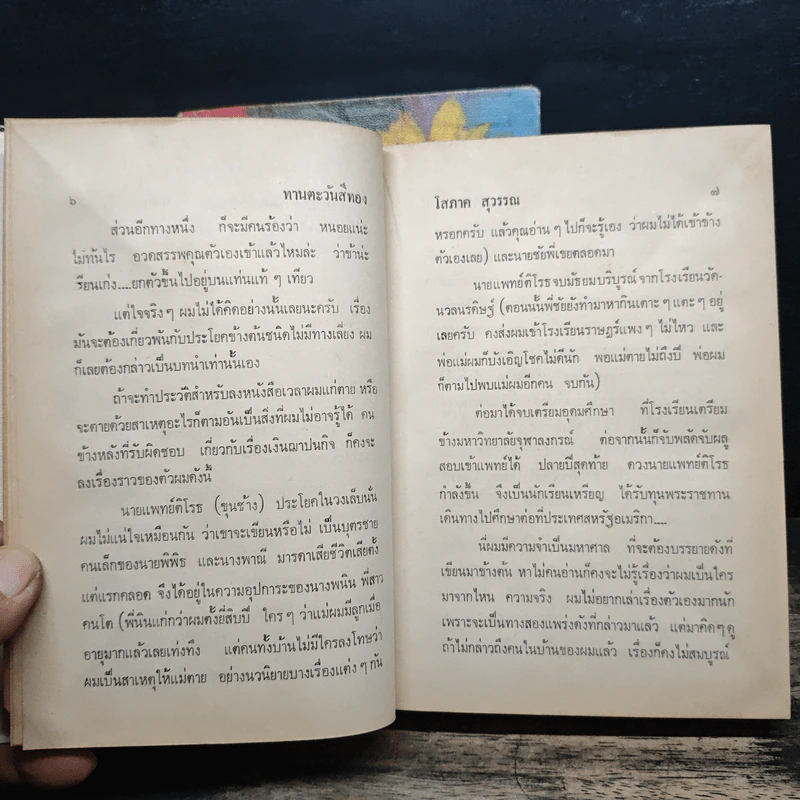 ๖ ทานตะวันสีทอง
ส่วนอีกทางหนึ่ง ก็จะมีคนร้องว่า หนอยแน่ะ
ไม่ทันไร อวดสรรพคุณตัวเองเข้าแล้วไหมล่ะ ว่าข้าน่ะ
เรียนเก่ง....ยกตัวขึ้นไปอยู่บนแท่นแท้ ๆ เทียว
แต่ใจจริงๆ ผมไม่ได้คิดอย่างนั้นเลยนะครับ เรื่อง
มันจะต้องเกี่ยวพันกับประโยคข้างต้นชนิดไม่มีทางเลี่ยง ผม
ก็เลยต้องกล่าวเป็นบทนำเท่านั้นเอง
ถ้าจะทำประวัติสำหรับลงหนังสือเวลาผมแก่ตาย หรือ
จะตายด้วยสาเหตุอะไรก็ตามอันเป็นสิ่งที่ผมไม่อาจรู้ได้ คน
ข้างหลังที่รับผิดชอบ เกี่ยวกับเรื่องเงินฌาปนกิจ ก็คงจะ
ลงเรื่องราวของตัวผมดังนี้
นายแพทย์ติโรธ (ขุนช้าง) ประโยคในวงเล็บนั่น
ผมไม่แน่ใจเหมือนกัน ว่าเขาจะเขียนหรือไม่ เป็นบุตรชาย
คนเล็กของนายพิพิธ และนางพาณี มารดาเสียชีวิตเสียตั้ง
แต่แรกคลอด จึงได้อยู่ในความอุปการะของนางพนิน พี่สาว
คนโต (พี่นินแก่กว่าผมตั้งยี่สิบปี ใครๆ ว่าแม่ผมมีลูกเมื่อ
อายุมากแล้วเลยเท่งทึง แต่คนทั้งบ้านไม่มีใครลงโทษว่า
ผมเป็นสาเหตุให้แม่ตาย อย่างนวนิยายบางเรื่องแต่ง ๆ กัน
โสภาค สุวรรณ ๗
หรอกครับ แล้วคุณอ่าน ๆ ไปก็จะรู้เอง ว่าผมไม่ได้เข้าข้าง
ตัวเองเลย) และนายชัยพี่เขยตลอดมา
นายแพทย์ติโรธจบมัธยมบริบูรณ์จากโรงเรียนวัด-
นวลนรดิษฐ์ (ตอนนั้นพี่ชัยยังทำมาหากินเตาะ ๆ แตะ ๆ อยู่
เลยครับ คงส่งผมเข้าโรงเรียนราษฎร์แพง ๆ ไม่ไหว และ
พ่อแม่ผมก็บังเอิญโชคไม่ดีนัก พอแม่ตายไม่ถึงปี พ่อผม
ก็ตามไปพบแม่ผมอีกคน จบกัน)
ต่อมาได้จบเตรียมอุดมศึกษา ที่โรงเรียนเตรียม
ข้างมหาวิทยาลัยจุฬาลงกรณ์ ต่อจากนั้นก็จับพลัดจับผลู
สอบเข้าแพทย์ได้ ปลายปีสุดท้าย ดวงนายแพทย์ติโรธ
กำลังขึ้น จึงเป็นนักเรียนเหรียญ ได้รับทุนพระราชทาน
เดินทางไปศึกษาต่อที่ประเทศสหรัฐอเมริกา....
นี่ผมมีความจำเป็นมหาศาล ที่จะต้องบรรยายดังที่
เขียนมาข้างต้น หาไม่คนอ่านก็คงจะไม่รู้เรื่องว่าผมเป็นใคร
มาจากไหน ความจริง ผมไม่อยากเล่าเรื่องตัวเองมากนัก
เพราะจะเป็นทางสองแพร่งดังที่กล่าวมาแล้ว แต่มาคิดๆ ดู
ถ้าไม่กล่าวถึงคนในบ้านของผมแล้ว เรื่องก็คงไม่สมบูรณ์